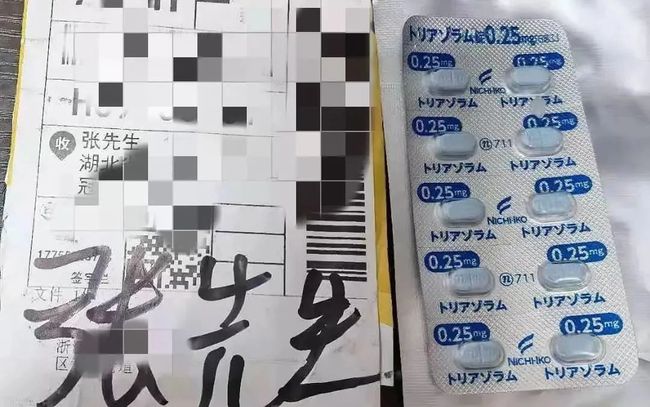 收
张先生
湖北
冠
签
文件
浙
区
道
张先生
トリアゾラム錠0.25mg「日医工」
0.25mg 0.25mg
トリアゾラム NICHI-IKO トリアゾラム
0.25mg 0.25mg
トリアゾラム n 711 トリアゾラム
0.25mg 0.25mg
トリアゾラム NICHI-IKO トリアゾラム
0.25mg 0.25mg
トリアゾラム n 711 トリアゾラム
0.25mg 0.25mg
トリアゾラム NICHI-IKO トリアゾラム